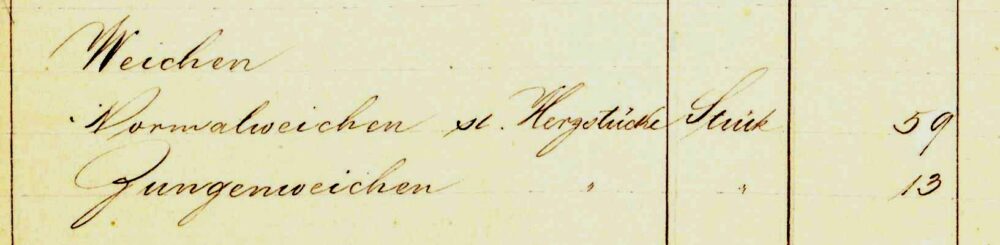 Weichen
Normalweichen st. Herzstücke Stück 59
Zungenweichen " " 13